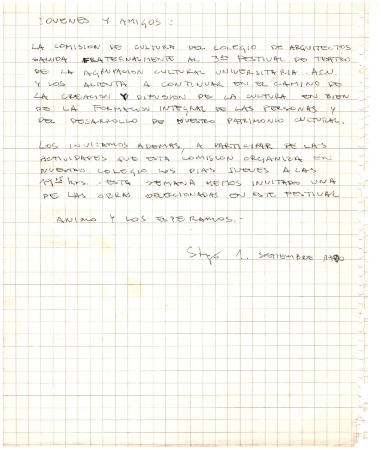 JOVENES Y AMIGOS:
LA COMISION DE CULTURA DEL COLEGIO DE ARQUITECTOS
SALUDA FRATERNALMENTE AL 3er FESTIVAL DE TEATRO
DE LA AGRUPACION CULTURAL UNIVERSITARIA. ACU.
Y LOS ALIENTA A CONTINUAR EN EL CAMINO DE
LA CREACION Y DIFUSION DE LA CULTURA EN BIEN
DE LA FORMACION INTEGRAL DE LAS PERSONAS Y
DEL DESARROLLO DE NUESTRO PATRIMONIO CULTURAL.
LOS INVITAMOS ADEMAS, A PARTICIPAR DE LAS
ACTIVIDADES QUE ESTA COMISION ORGANIZA EN
NUESTRO COLEGIO LOS DIAS JUEVES A LAS
HRS. ESTA SEMANA HEMOS INVITADO UNA
DE LAS OBRAS SELECCIONADAS EN ESTE FESTIVAL
ANIMO Y LOS ESPERAMOS.-
Stgo 1. SEPTIEMBRE